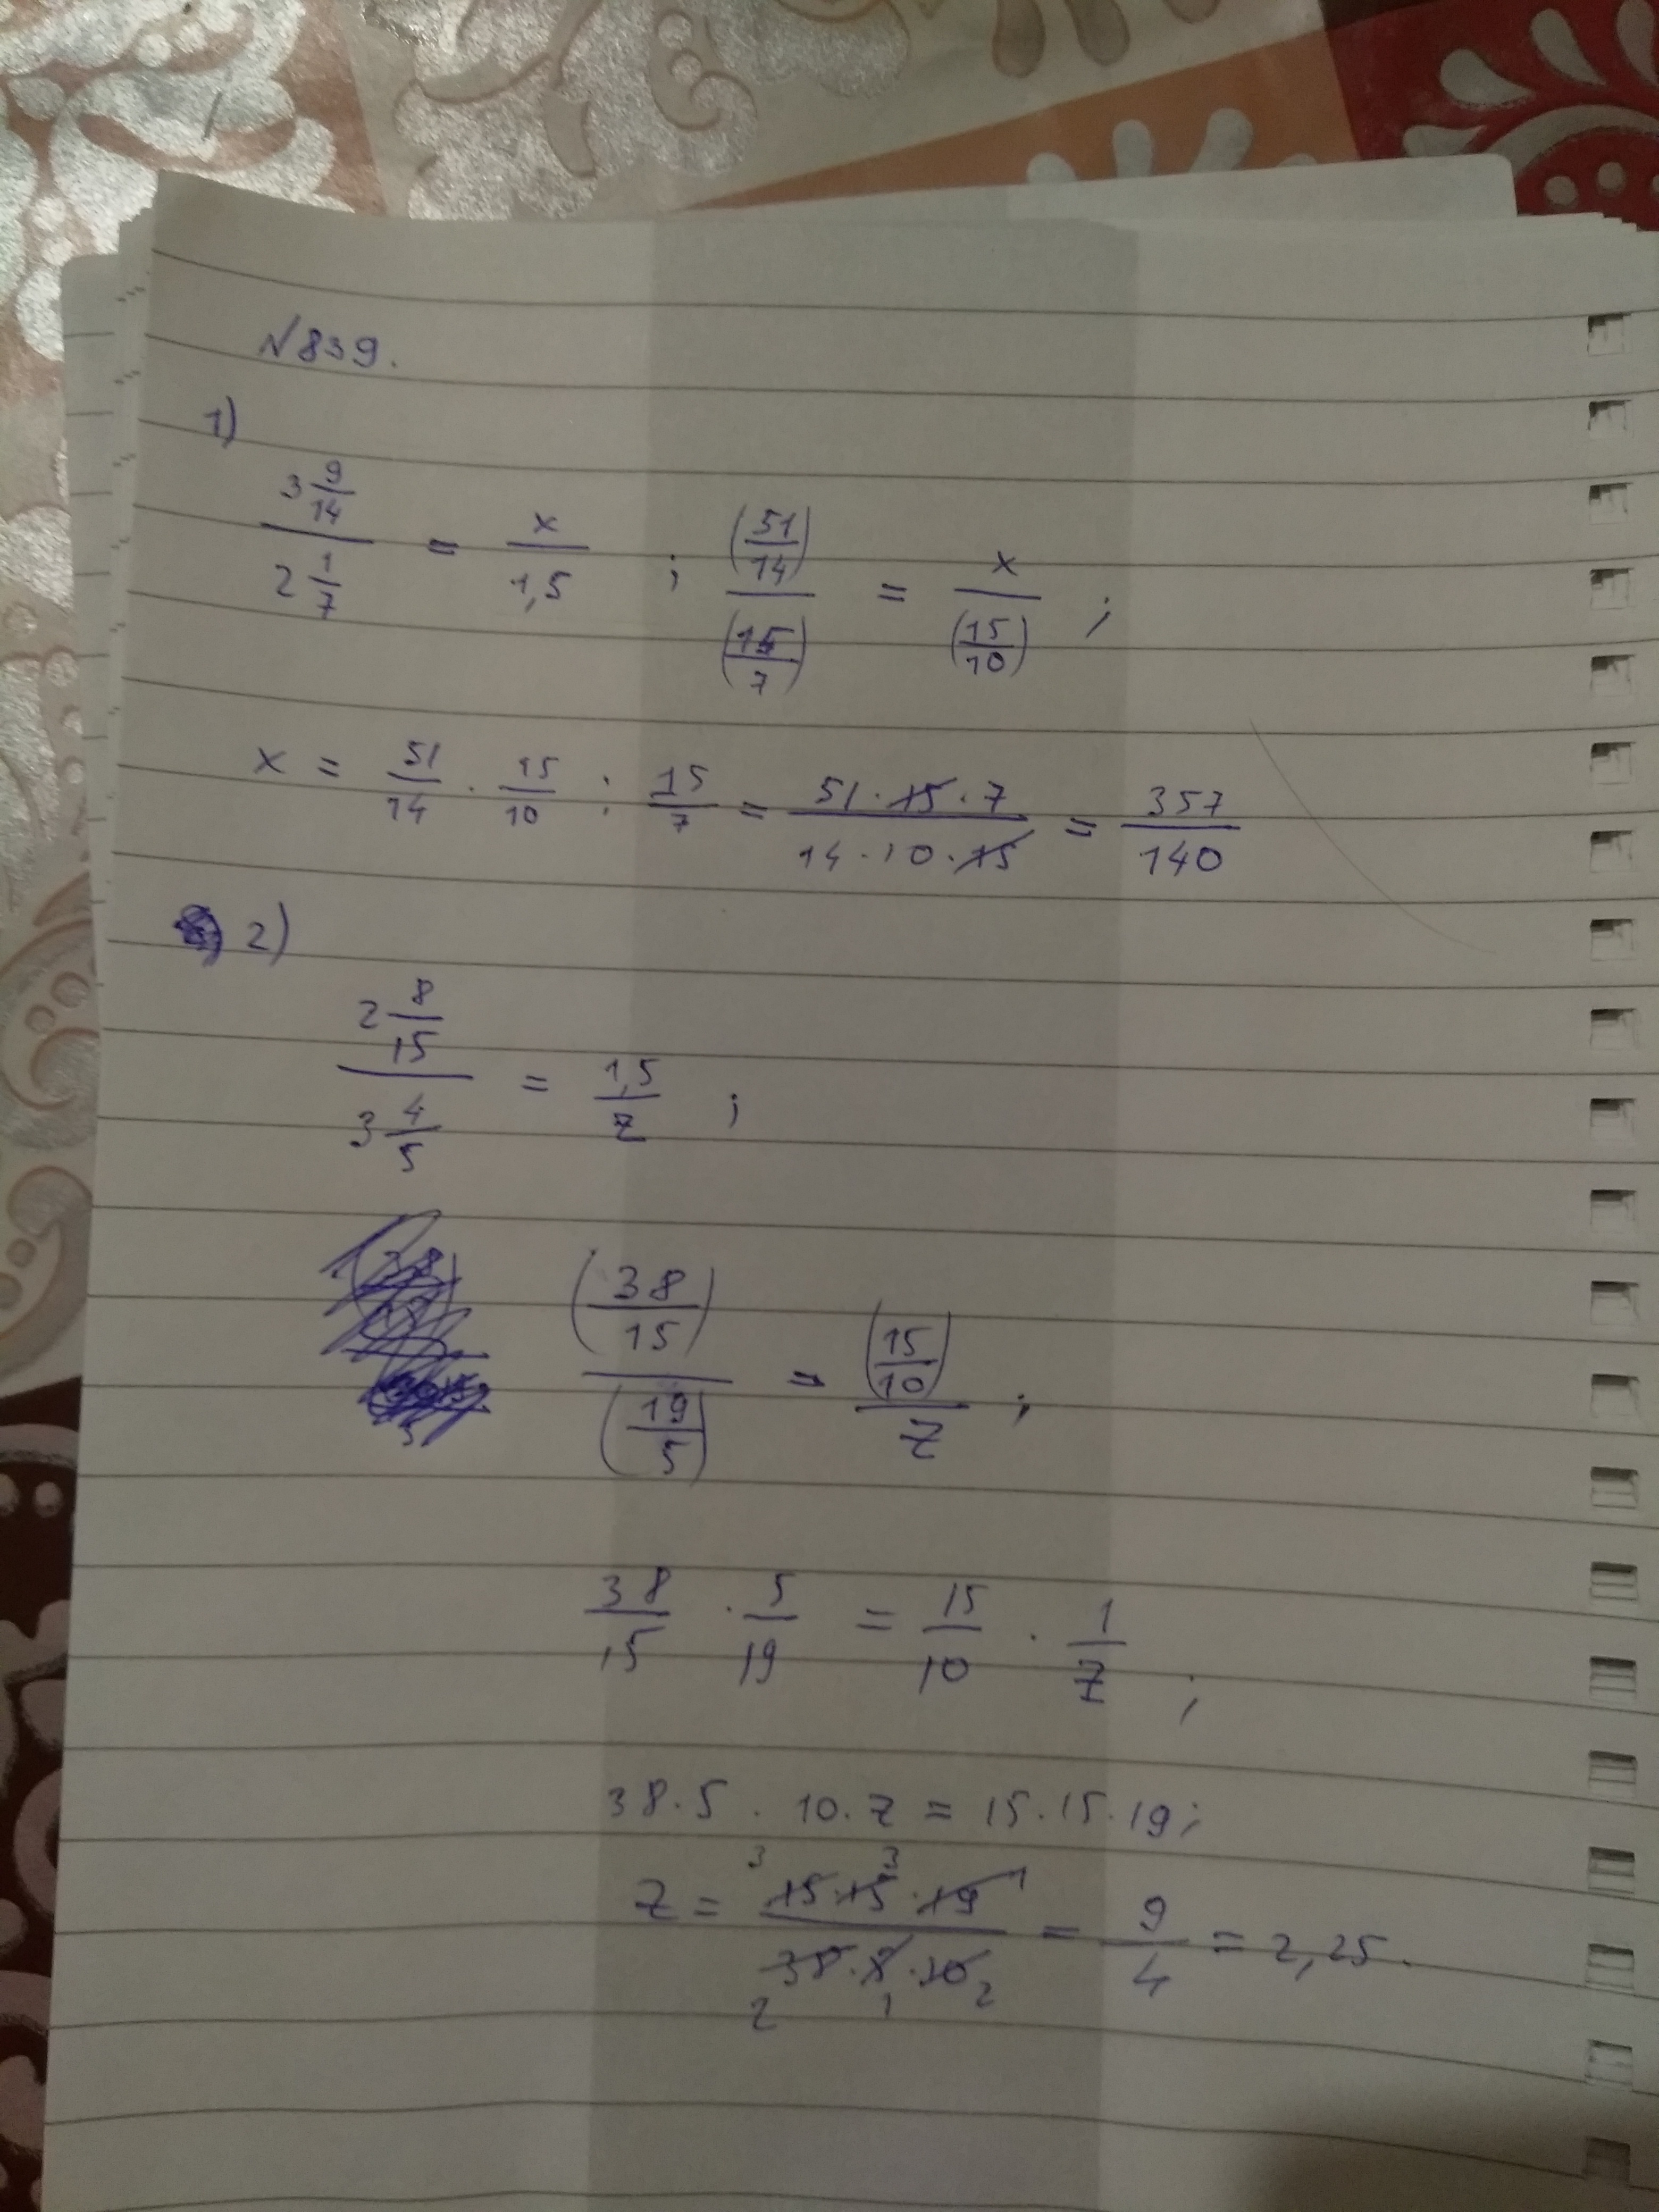 №839.
1)
3 9/14 / 2 1/7 = x / 1,5 ; (51/14) / (15/7) = x / (15/10) ;
x = 51/14 · 15/10 : 15/7 = 51·15·7 / 14·10·15 = 357/140
2)
2 8/15 / 3 4/5 = 1,5 / z ;
(38/15) / (19/5) = (15/10) / z ;
38/15 · 5/19 = 15/10 · 1/z ;
38·5 · 10·z = 15·15·19;
z = 3 15·15 3·19 1 / 38 2·5 1·10 2 = 9/4 = 2,25.